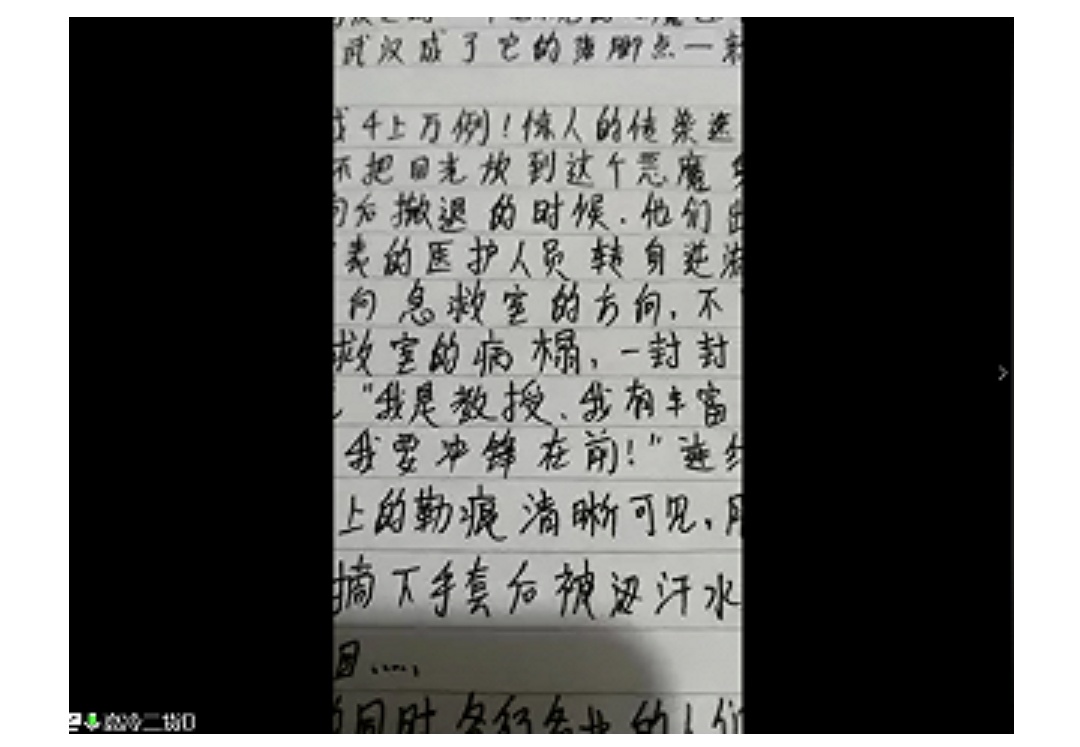 武汉成了它的落脚点一新
成千上万例！惊人的传染速
不把目光放到这个恶魔身
向后撤退的时候.他们
表的医护人员转身逆流
向急救室的方向,不
救室的病榻,一封封
"我是教授、我有丰富
我要冲锋在前!"连续
上的勒痕清晰可见,
摘下手套后被汗水
目……
同时各行各业的人们